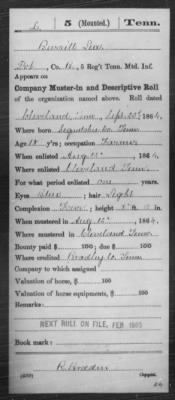 5 (Mounted.) Tenn.
Co. 5 Reg't Tenn. Mtd. Inf.
Appears on
Company Muster-in and Descriptive Roll
of the organization named above. Roll dated
Cleveland Tenn, Sept. 30, 1864.
Where born Tenn
Age 18 y'rs; occupation Farmer
When enlisted Aug 15, 1864.
Where enlisted Cleveland Tenn
For what period enlisted one years.
Eyes Blue; hair Light
Complexion; height ft. in.
When mustered in Aug 15, 1864.
Where mustered in Cleveland Tenn
Bounty paid $ 100; due $ 100
Where credited Bradley Co. Tenn
Company to which assigned
Valuation of horse, $ 100
Valuation of horse equipments, $ 100
Remarks:
NEXT ROLL ON FILE, FEB 1865
Book mark:
Copyist.